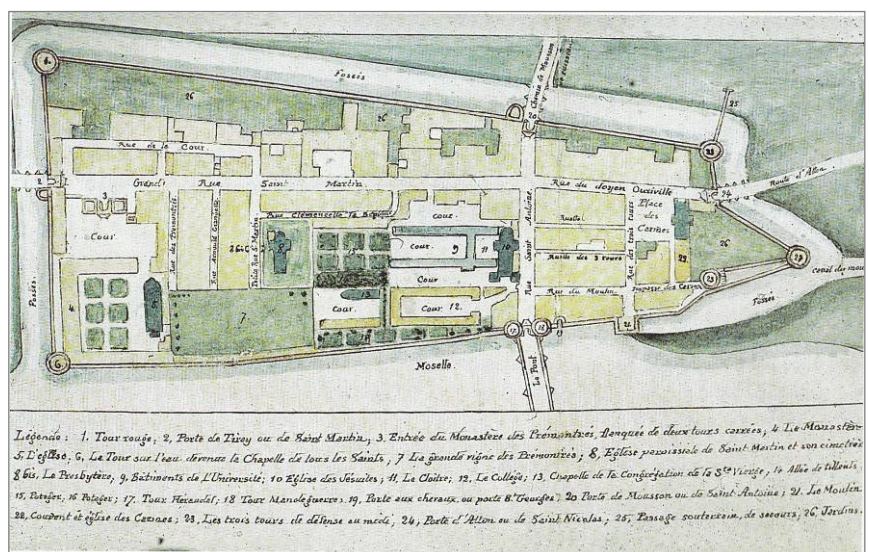 1.
26
Fossés
Chemin de Mousson
25
26
20
Rue de la Cour.
23
2
1
Grande Rue Saint Martin.
Rue du doyen Ouxiville
24
Route d'Atton
3
Rue Clémencette la Béguine
Cour
Cour.
Cour.
9
11
10
Ruelle
Place des Carmes
26
Rue des Prémontrés
Petite Rue St Martin
8
15
Rue Saint Antoine
Ruelle des 3 tours
Rue des trois tours
22
23
23
Fossés
4
5
7
Cour.
13
Cour
Cour 12.
Rue du Moulin
Impasse des Carmes
Fossés
canal des mou
6.
17
18
19
21
Moselle.
Le Pont
Légende : 1. Tour rouge; 2, Porte de Tirey ou de Saint Martin; 3. Entrée du Monastère des Prémontrés, flanquée de deux tours carrées; 4. Le Monastère
5, L'église, 6, La Tour sur l'eau devenue la Chapelle de tous les Saints; 7 La grande vigne des Prémontrés; 8, Eglise paroissiale de Saint Martin et son cimetière
8 bis, Le Presbytère, 9, Bâtiments de L'Université; 10 Eglise des Jésuites; 11, Le Cloître; 12, Le Collège; 13, Chapelle de la Congrégation de la Ste Vierge; 14 Allée de tilleuls,
15, Potager, 16 Potager; 17, Tour Heraudel; 18 Tour Mandeguerre. 19, Porte aux chevaux, ou porte St Georges; 20 Porte de Mousson ou de Saint Antoine; 21. Le Moulin
22, Couvent et église des Carmes; 23, Les trois tours de défense au midi, 24, Porte d'Atton ou de Saint Nicolas; 25, Passage souterrain, de secours; 26, Jardins.